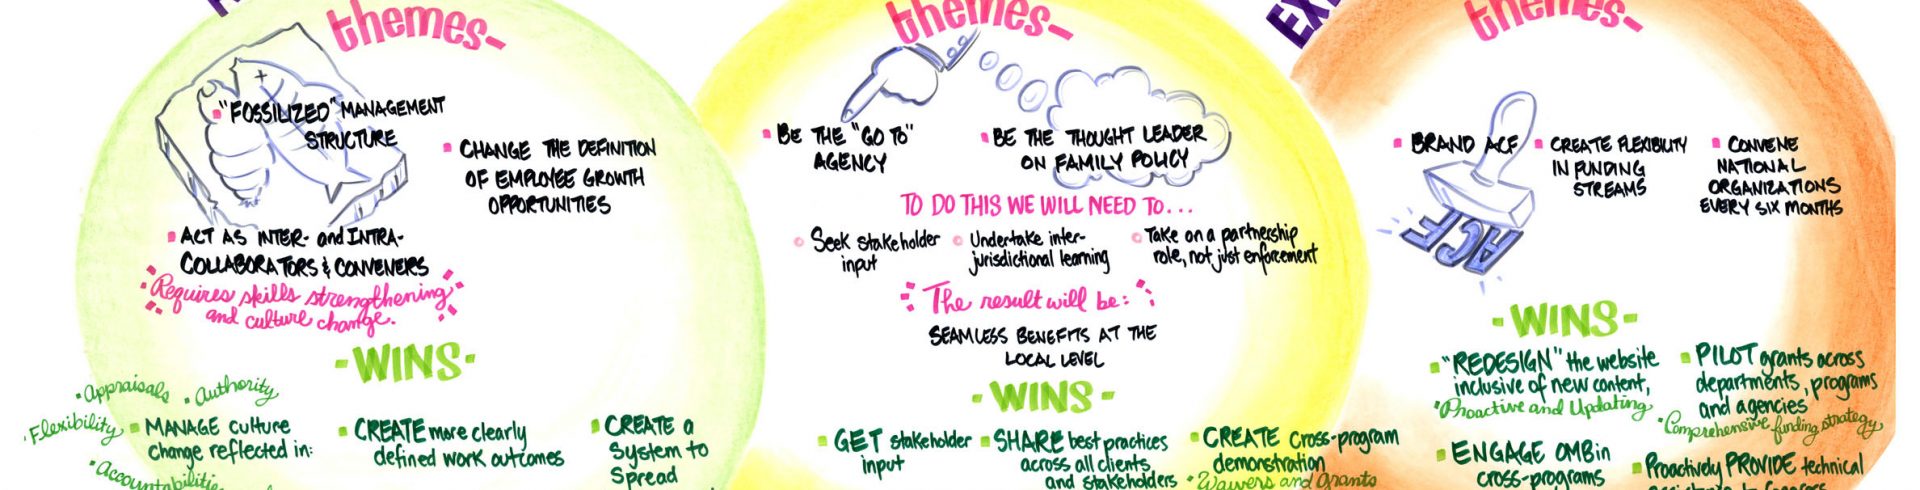 themes-
"FOSSILIZED" MANAGEMENT
STRUCTURE
CHANGE THE DEFINITION
OF EMPLOYEE GROWTH
OPPORTUNITIES
ACT AS INTER- and INTRA-
COLLABORATORS & CONVENERS
Requires skills strengthening
and culture change.
-WINS-
Appraisals
Authority
Flexibility
MANAGE culture
change reflected in:
CREATE more clearly
defined work outcomes
CREATE a
System to
Spread
themes-
BE THE "GO TO"
AGENCY
BE THE THOUGHT LEADER
ON FAMILY POLICY
TO DO THIS WE WILL NEED TO...
Seek stakeholder
input
Undertake inter-
jurisdictional learning
Take on a partnership
role, not just enforcement
The result will be:
SEAMLESS BENEFITS AT THE
LOCAL LEVEL
-WINS-
GET stakeholder
input
SHARE best practices
across all clients
and stakeholders
CREATE cross-program
demonstration
Waivers and Grants
themes-
BRAND ACF
CREATE FLEXIBILITY
IN FUNDING
STREAMS
CONVENE
NATIONAL
ORGANIZATIONS
EVERY SIX MONTHS
ACF
-WINS-
"REDESIGN" the website
inclusive of new content,
Proactive and Updating
PILOT grants across
departments, programs
and agencies
Comprehensive funding strategy
ENGAGE OMB in
cross-programs
Proactively PROVIDE technical